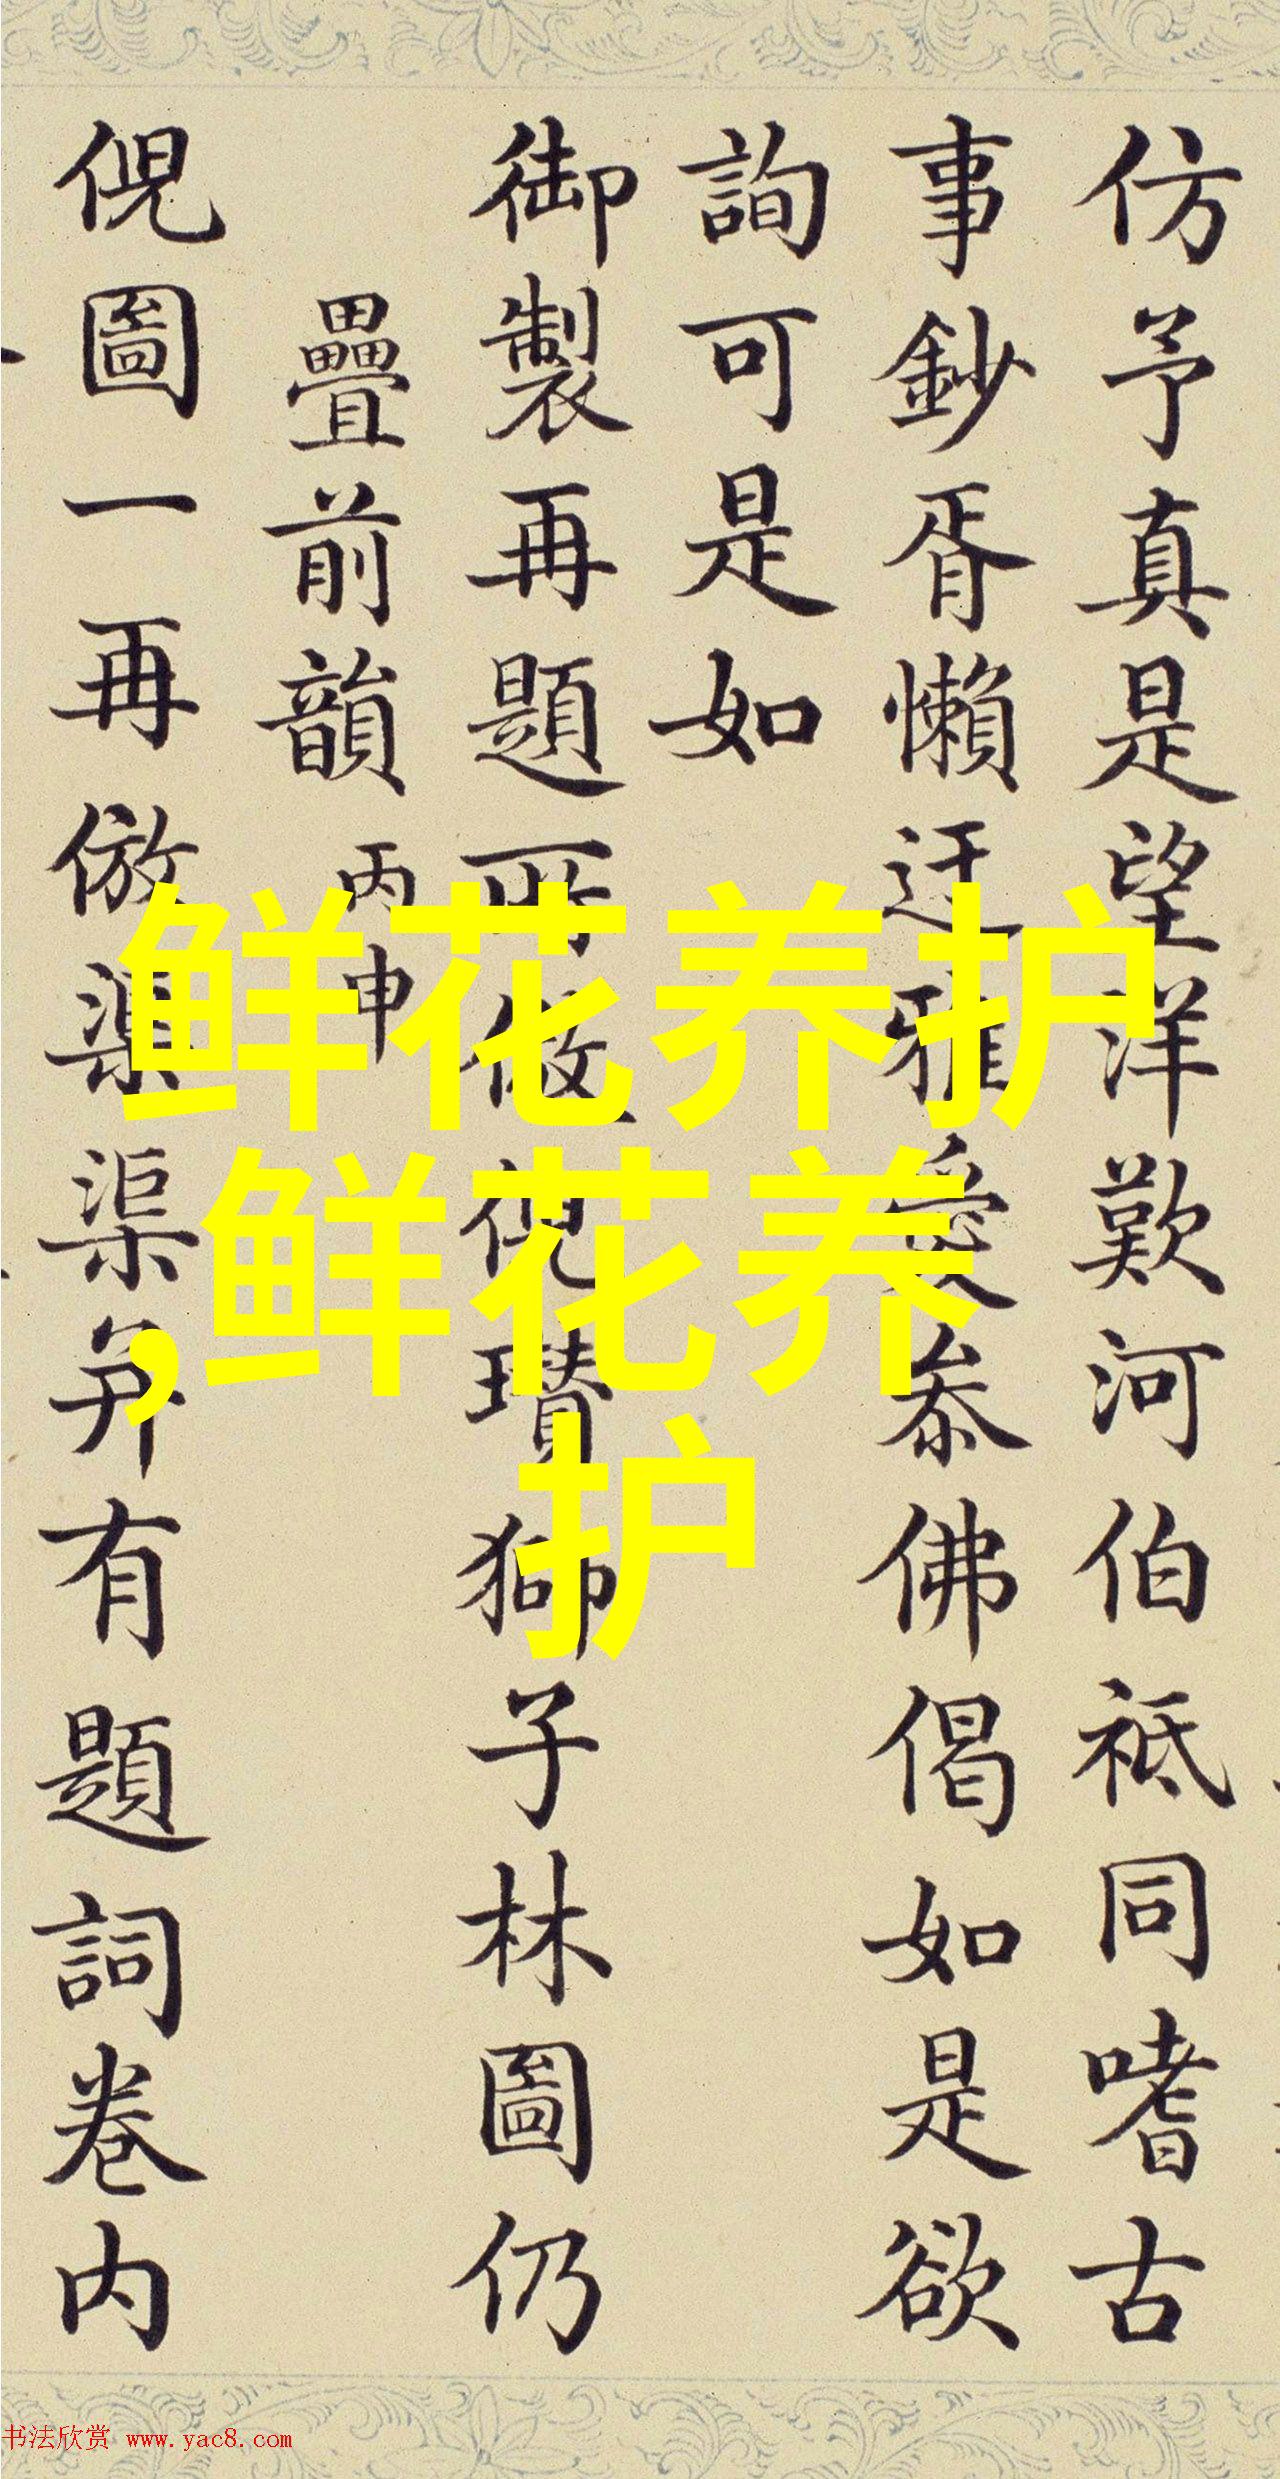 仿予真是望洋歎河伯祗同嗜古
事鈔胥懶迂雅愛叅佛偈如是欲
詢可是如
御製再題所倣倪瓚獅子林圖仍
疊前韻 丙申
倪圖一再倣渠渠弆有題詞卷内
鲜花养护
,鲜花养
护
书法欣赏 www.yac8.com